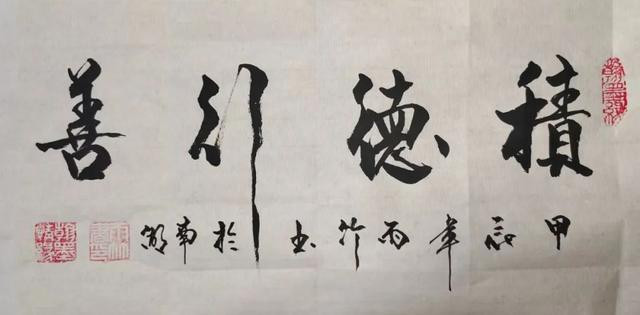 積德行善
甲辰年雨竹书於南湖